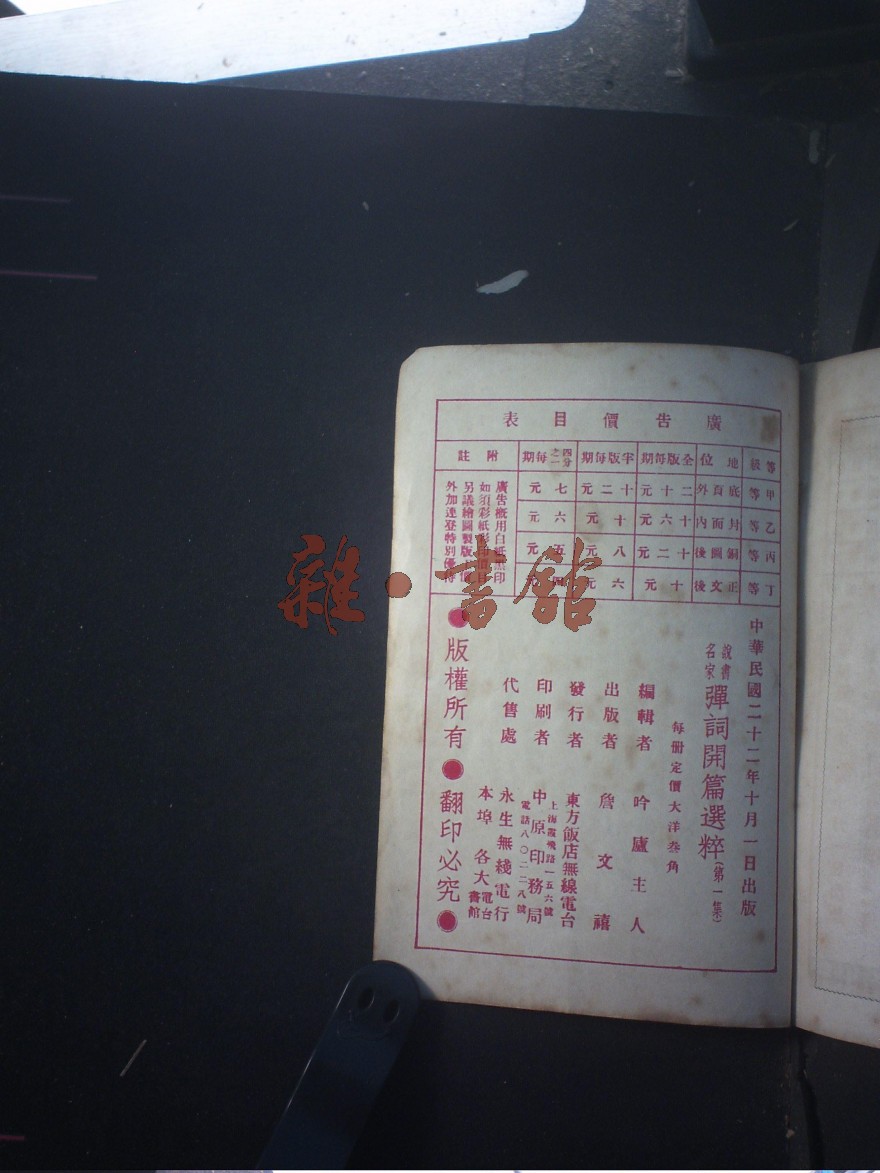 廣告價目表
等級 地位 全版每期 半版每期 四分之一每期 附註
甲等 底頁外 二十元 十二元 七元
乙等 封面內 十六元 十元 六元
丙等 銅圖後 十二元 八元 五元
丁等 正文後 十元 六元 四元
廣告概用白紙黑印
如須彩紙彩印價目
另議繪圖製版
外加連登特別優待
中華民國二十二年十月一日出版
說書名家 彈詞開篇選粹(第一集)
每冊定價大洋叁角
編輯者 吟廬主人
出版者 詹文禧
發行者 東方飯店無線電台
印刷者 中原印務局
上海霞飛路一五六號
電話八〇二二八號
代售處 永生無綫電行
本埠各大電台書館
版權所有 翻印必究
雜·書館